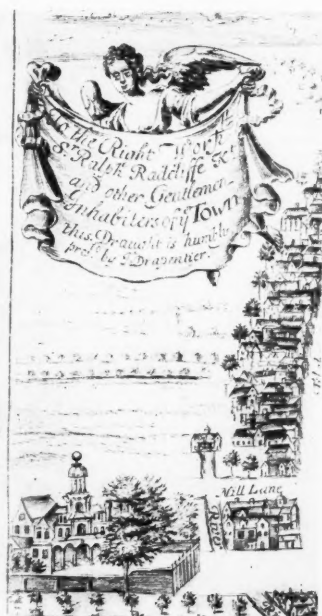 To the Right Worsh^ll
S^r Ralph Radcliffe K^t
and other Gentlemen
Inhabiters of y^e Town
this Draught is humbly
pres. by J. Drapentier.
Mill Lane